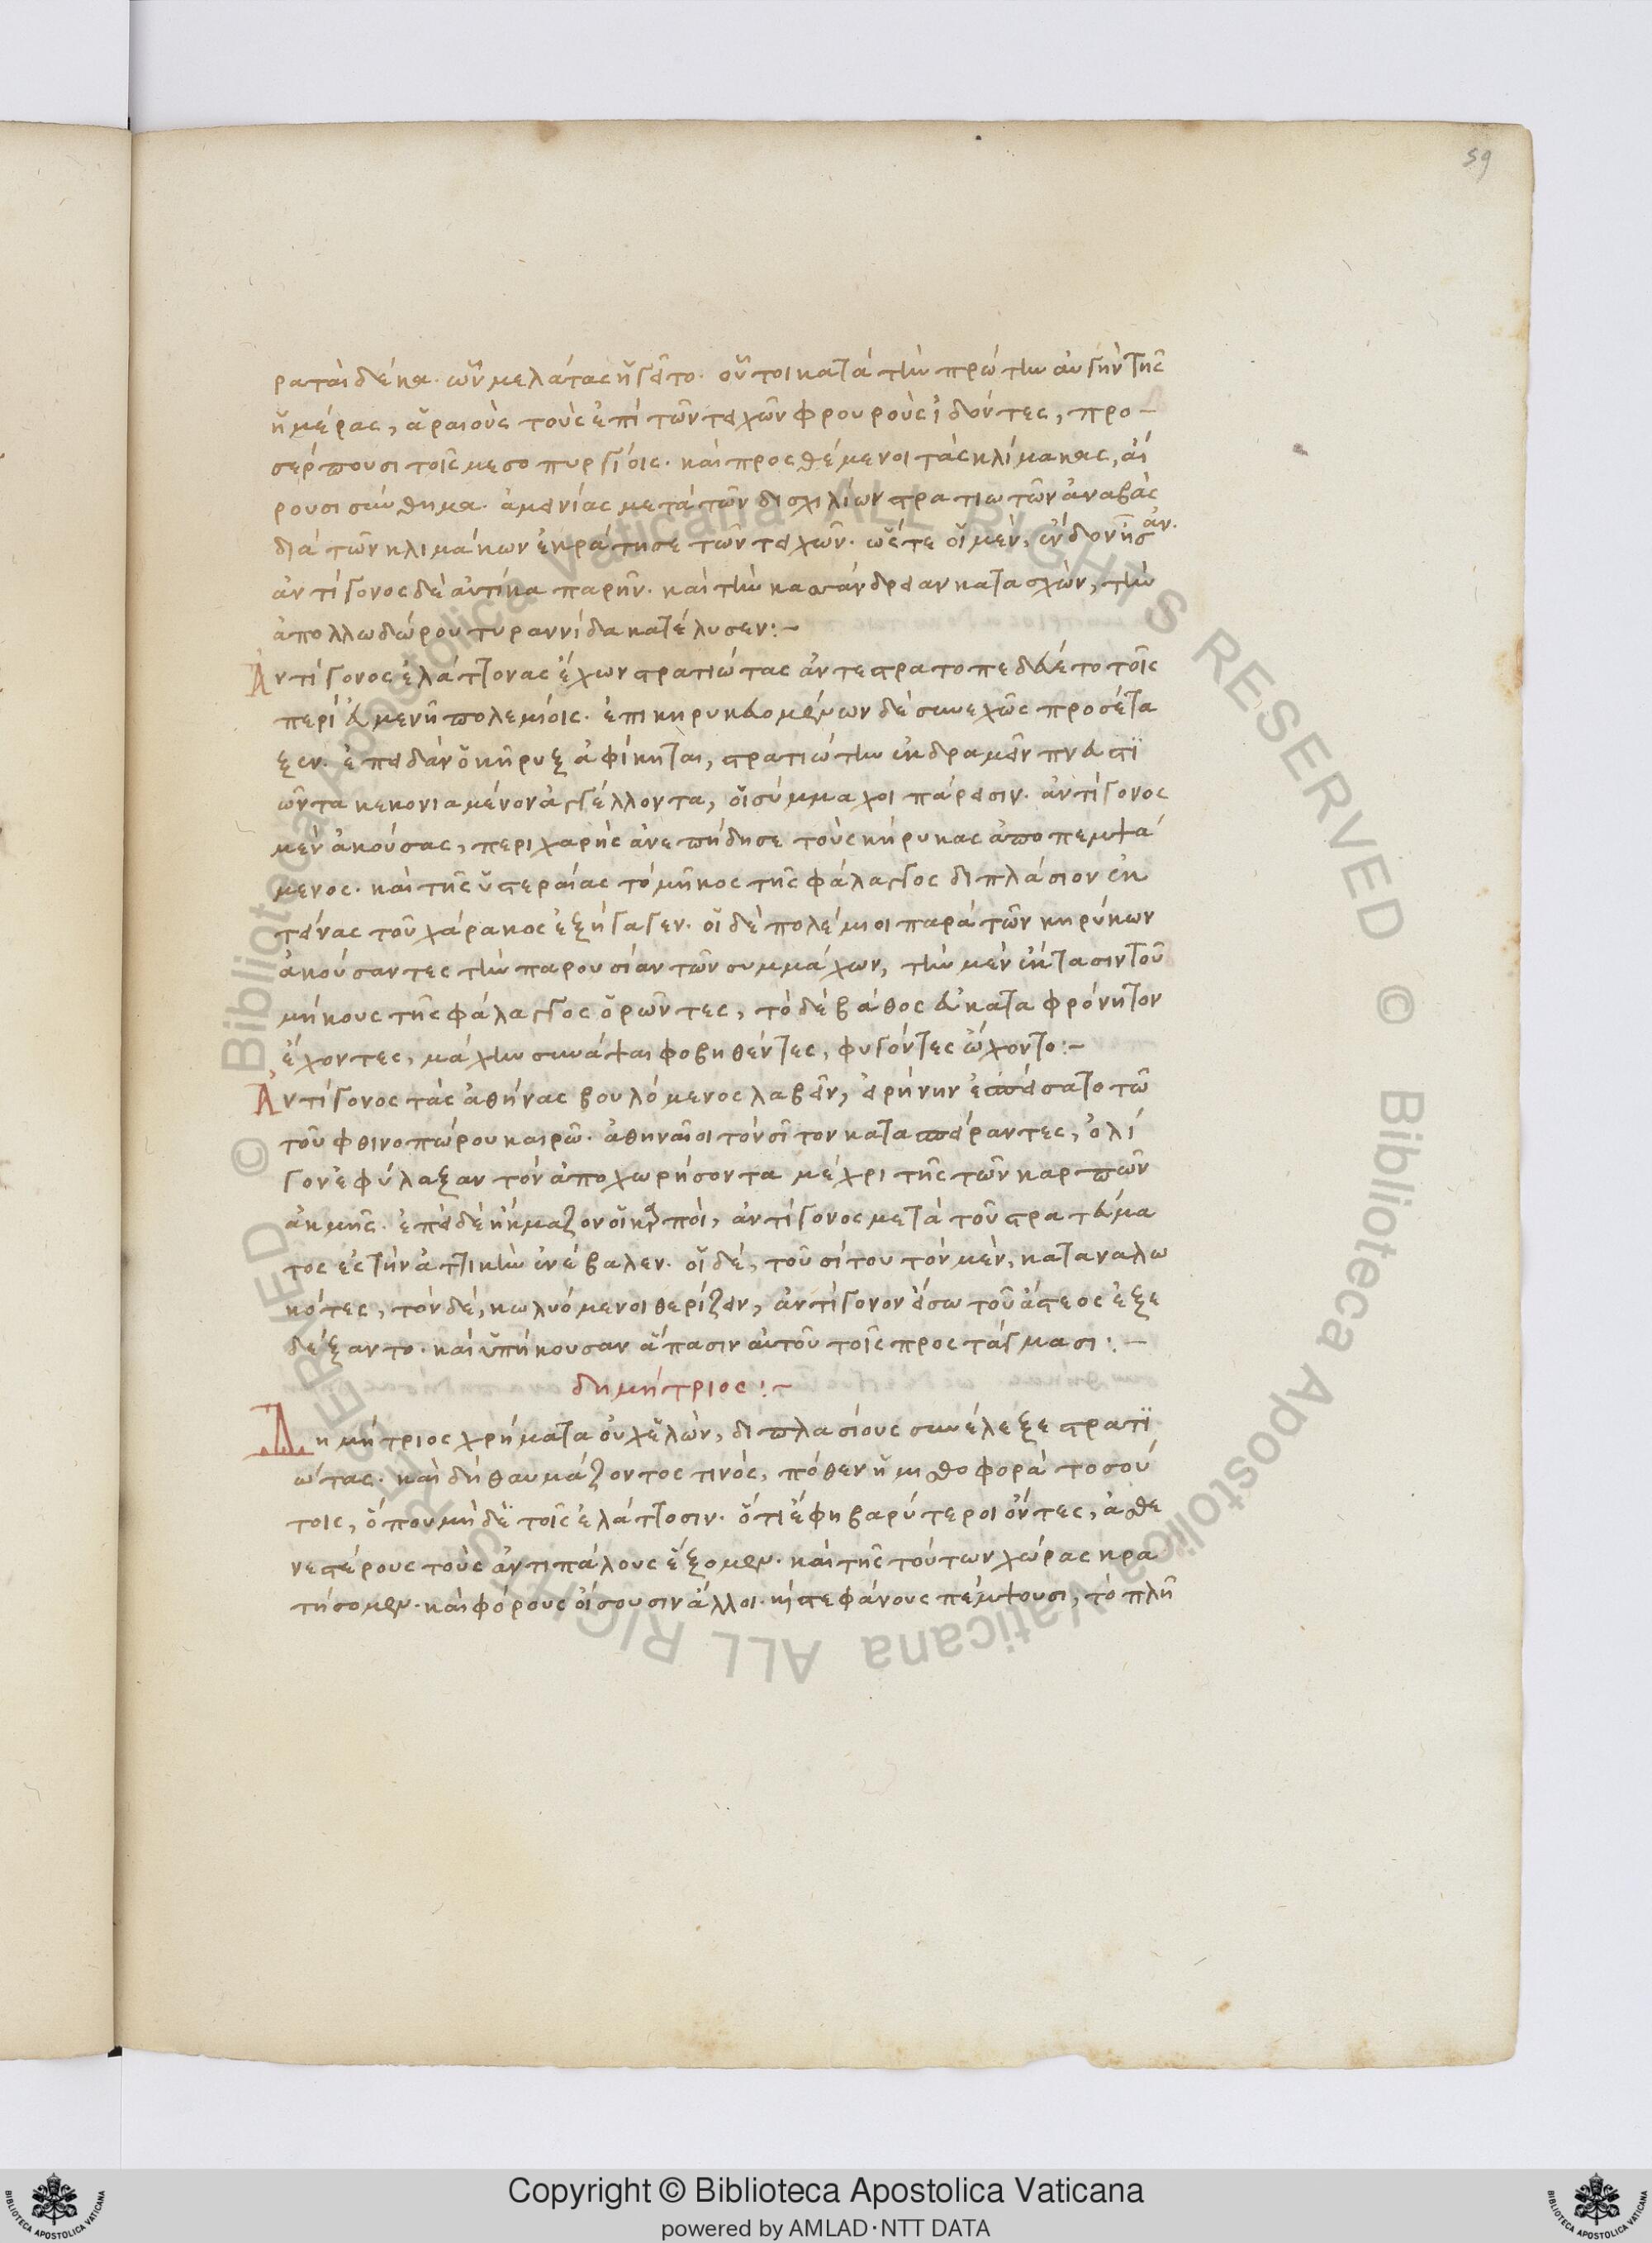 59
ραται δέκα. ὧν μελάτας ἡγεῖτο. οὗτοι κατὰ τὴν πρώτην αὐγὴν τῆς
ἡμέρας, ἀραιοὺς τοὺς ἐπὶ τῶν τειχῶν φρουροὺς ἰδόντες, προ-
σέρπουσι τοῖς μεσοπυργίοις. καὶ προσθέμενοι τὰς κλίμακας, αἴ
ρουσι σύνθημα. ἀμεινίας μετὰ τῶν δισχιλίων στρατιωτῶν ἀναβὰς
διὰ τῶν κλιμάκων ἐκράτησε τῶν τειχῶν. ὥστε οἱ μὲν, ἔνδον ἦσαν.
ἀντίγονος δὲ αὐτίκα παρῆν. καὶ τὴν κασάνδρειαν κατασχὼν, τὴν
ἀπολλωδώρου τυραννίδα κατέλυσεν:-
Ἀντίγονος ἐλάττονας ἔχων στρατιώτας ἀντεστρατοπεδεύετο τοῖς
περὶ εὐμενῆ πολεμίοις. ἐπικηρυκευομένων δὲ συνεχῶς προσέτα
ξεν. ἐπειδὰν ὁ κῆρυξ ἀφίκηται, στρατιώτην ἐκδραμεῖν πνευστϊ
ῶντα κεκονιαμένον ἀγγέλλοντα, οἱ σύμμαχοι πάρεισιν. ἀντίγονος
μὲν ἀκούσας, περιχαρὴς ἀνεπήδησε τοὺς κήρυκας ἀποπεμψά
μενος. καὶ τῆς ὑστεραίας τὸ μῆκος τῆς φάλαγγος διπλάσιον ἐκ
τείνας τοῦ χάρακος ἐξήγαγεν. οἱ δὲ πολέμιοι παρὰ τῶν κηρύκων
ἀκούσαντες τὴν παρουσίαν τῶν συμμάχων, τὴν μὲν ἔκτασιν τοῦ
μήκους τῆς φάλαγγος ὁρῶντες, τὸ δὲ βάθος εὐκαταφρόνητον
ἔχοντες, μάχην συνάψαι φοβηθέντες, φυγόντες ὤχοντο:-
Ἀντίγονος τὰς ἀθήνας βουλόμενος λαβεῖν, εἰρήνην ἐσπείσατο τῶ
τοῦ φθινοπώρου καιρῶ. ἀθηναῖοι τὸν σῖτον κατασπείραντες, ὀλί
γον ἐφύλαξαν τὸν ἀποχωρήσοντα μέχρι τῆς τῶν καρπῶν
ἀκμῆς. ἐπεὶ δὲ ἤκμαζον οἱ καρποὶ, ἀντίγονος μετὰ τοῦ στρατεύμα
τος ἐς τὴν ἀττικὴν ἐνέβαλεν. οἱ δὲ, τοῦ σίτου τὸν μὲν, καταναλω
κότες, τὸν δὲ, κωλυόμενοι θερίζειν, ἀντίγονον εἴσω τοῦ ἄστεος ἐξε
δέξαντο. καὶ ὑπήκουσαν ἅπασιν αὐτοῦ τοῖς προστάγμασι:-
δημήτριος:-
Δημήτριος χρήματα οὐχ ἑλὼν, διπλασίους συνέλεξε στρατϊ
ώτας. καὶ δὴ θαυμάζοντος τινὸς, πόθεν ἡ μισθοφορὰ τοσού
τοις, ὅπου μὴ δὲ τοῖς ἐλάττοσιν. ὅτι ἔφη βαρύτεροι ὄντες, ἀσθε
νεστέρους τοὺς ἀντιπάλους ἕξομεν. καὶ τῆς τούτων χώρας κρα
τήσομεν. καὶ φόρους οἴσουσιν ἄλλοι. καὶ στεφάνους πέμψουσι, τὸ πλῆ
© Biblioteca Apostolica Vaticana ALL RIGHTS RESERVED © Biblioteca Apostolica Vaticana ALL RIGHTS RESERVED
Copyright © Biblioteca Apostolica Vaticana
powered by AMLAD·NTT DATA
BIBLIOTECA APOSTOLICA VATICANA
BIBLIOTECA APOSTOLICA VATICANA